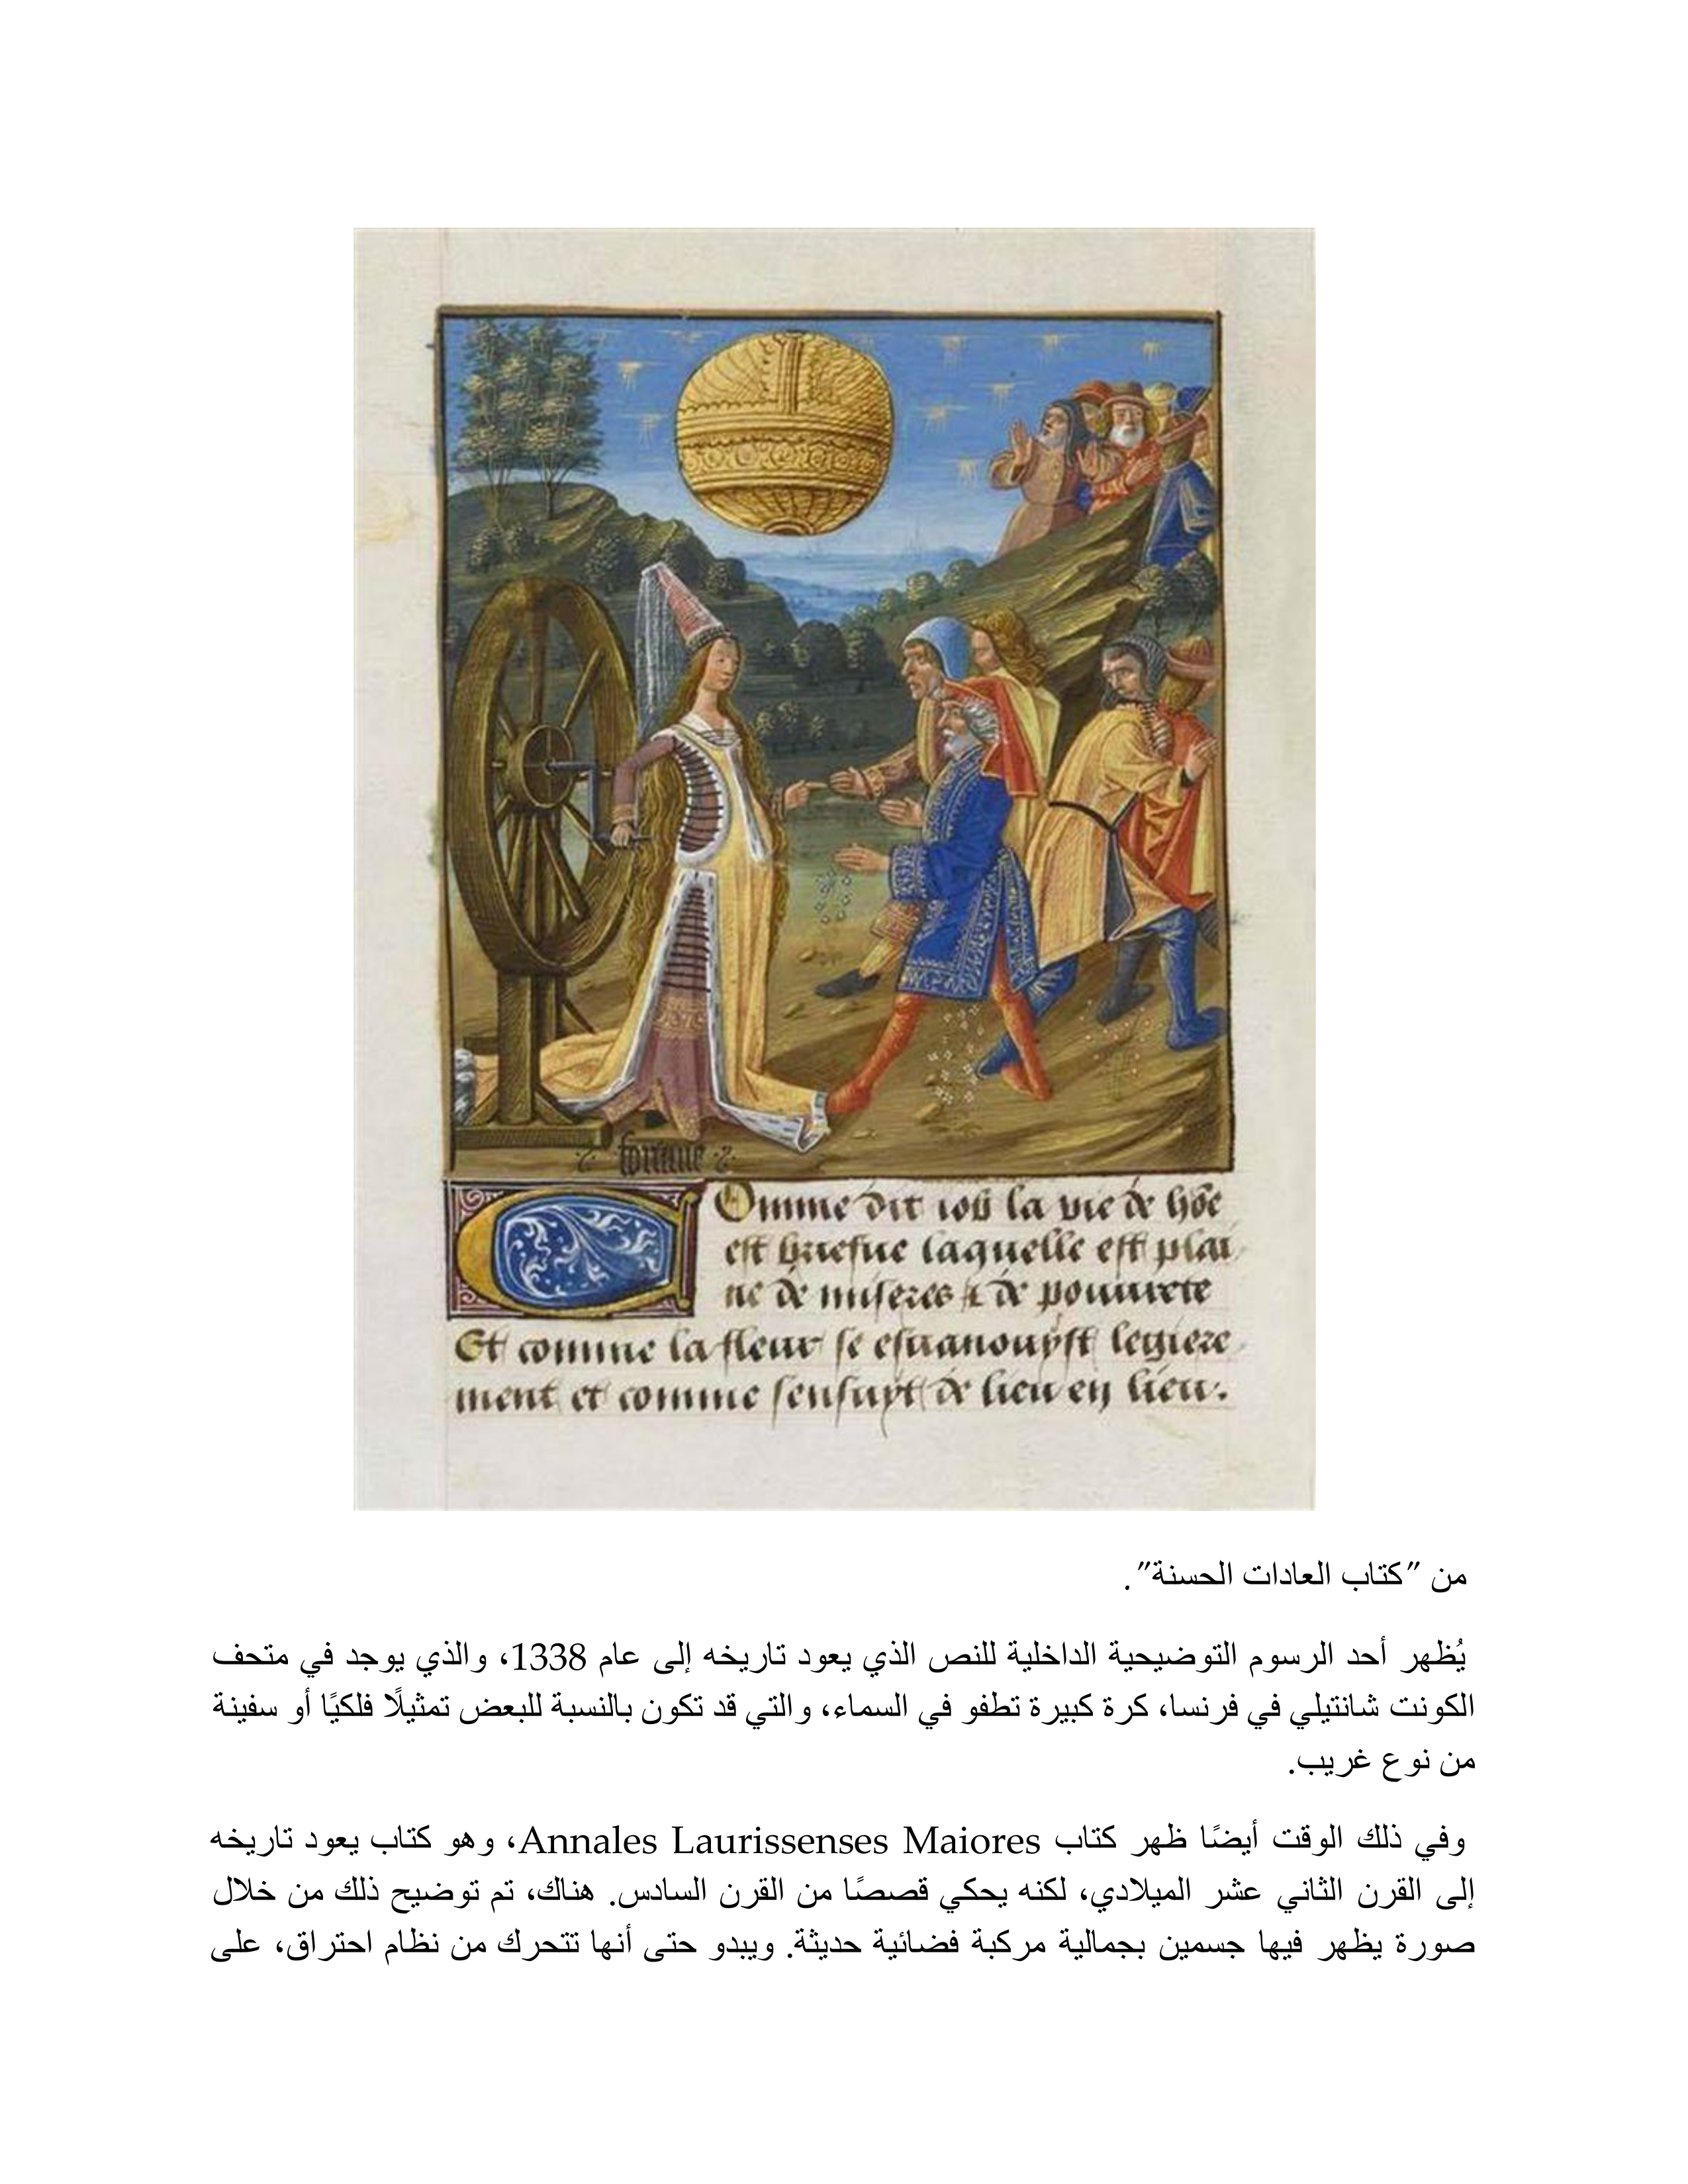 fortune
Comme dit iob la vie de hōe
est briefue laquelle est plai
ne de miseres & de pouurete
Et comme la fleur se esuanouyst legiere
ment et comme sensuyt de lieu en lieu.
من "كتاب العادات الحسنة".
يُظهر أحد الرسوم التوضيحية الداخلية للنص الذي يعود تاريخه إلى عام 1338، والذي يوجد في متحف
الكونت شانتيلي في فرنسا، كرة كبيرة تطفو في السماء، والتي قد تكون بالنسبة للبعض تمثيلًا فلكيًا أو سفينة
من نوع غريب.
وفي ذلك الوقت أيضًا ظهر كتاب Annales Laurissenses Maiores، وهو كتاب يعود تاريخه
إلى القرن الثاني عشر الميلادي، لكنه يحكي قصصًا من القرن السادس. هناك، تم توضيح ذلك من خلال
صورة يظهر فيها جسمين بجمالية مركبة فضائية حديثة. ويبدو حتى أنها تتحرك من نظام احتراق، على